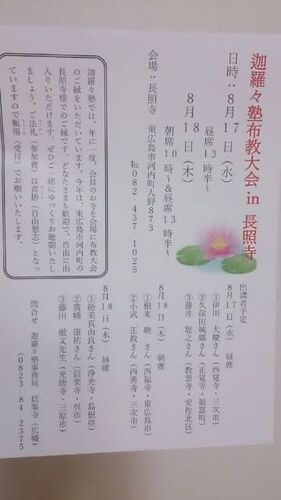 迦羅々塾布教大会・in 長照寺
日時：８月１７日（水）
昼席１３時半～
８月１８日（木）
朝席１０時～＆昼席１３時半～
会場：長照寺 東広島市河内町入野873
℡082 437 1025
出講者予定
８月１７日（水）昼席
①伊川 大慶さん（西覚寺・三次市）
②久保田城郷さん（正覚寺・福富町）
③藤井 聡之さん（教雲寺・安佐北区）
８月１８日（木）朝席
①根來 暁 さん（西福寺・東広島市）
②小武 正教さん（西善寺・三次市）
８月１８日（木）昼席
①能美真由良さん（浄光寺・島根県）
②廣幡 康祐さん（信楽寺・呉市）
③藤田 徹文先生（光徳寺・三原市）
迦羅々塾では、年に一度、会員のお寺を会場に布教大会
のご縁をいただいています。今年は、東広島市河内町の
長照寺様でのご縁です。どなたさまも歓迎で、自由に出
入りいただけます。ぜひご一緒にゆっくりお聴聞いたし
ましょう。ご法礼（参加費）は喜捨（自由懇志）となっ
ていますので帳場（受付）でお願いいたします。
問合せ 迦羅々塾事務局 信楽寺（広幡）
（0823 84 2375）